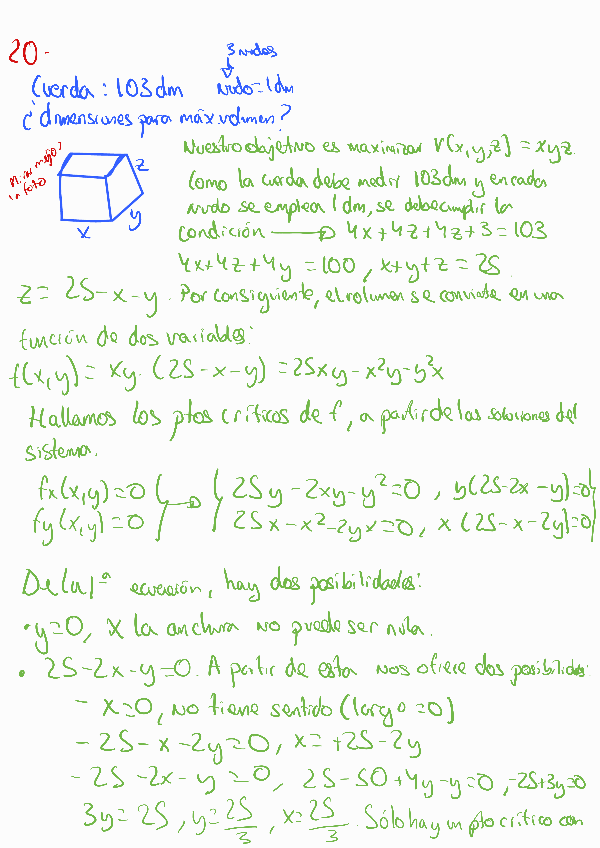 20-
3 nudos
Cuerda: 103dm nudo=1dm
¿dimensiones para máx volumen?
Mirar mejor
in foto
z
y
x
Nuestro objetivo es maximizar V(x,y,z) = xyz.
Como la cuerda debe medir 103dm y en cada
nudo se emplea 1 dm, se debe cumplir la
condición → 4x+4z+4z+3=103
4x+4z+4y=100, x+y+z=25
z= 25-x-y. Por consiguiente, el volumen se convierte en una
función de dos variables:
f(x,y)= xy·(25-x-y)=25xy-x²y-y²x
Hallamos los ptos críticos de f, a partir de las soluciones del
sistema.
fx(x,y)=0 } → { 25y-2xy-y²=0, y(25-2x-y)=0 }
fy(x,y)=0 } { 25x-x²-2yx=0, x(25-x-2y)=0 }
De la 1ª ecuación, hay dos posibilidades:
• y=0, X la anchura no puede ser nula.
• 25-2x-y=0. A partir de esta nos ofrece dos posibilidades
- x=0, no tiene sentido (largo=0)
- 25-x-2y=0, x=+25-2y
- 25-2x-y=0, 25-50+4y-y=0, -25+3y=0
3y=25, y=25/3, x=25/3. Sólo hay un pto crítico con